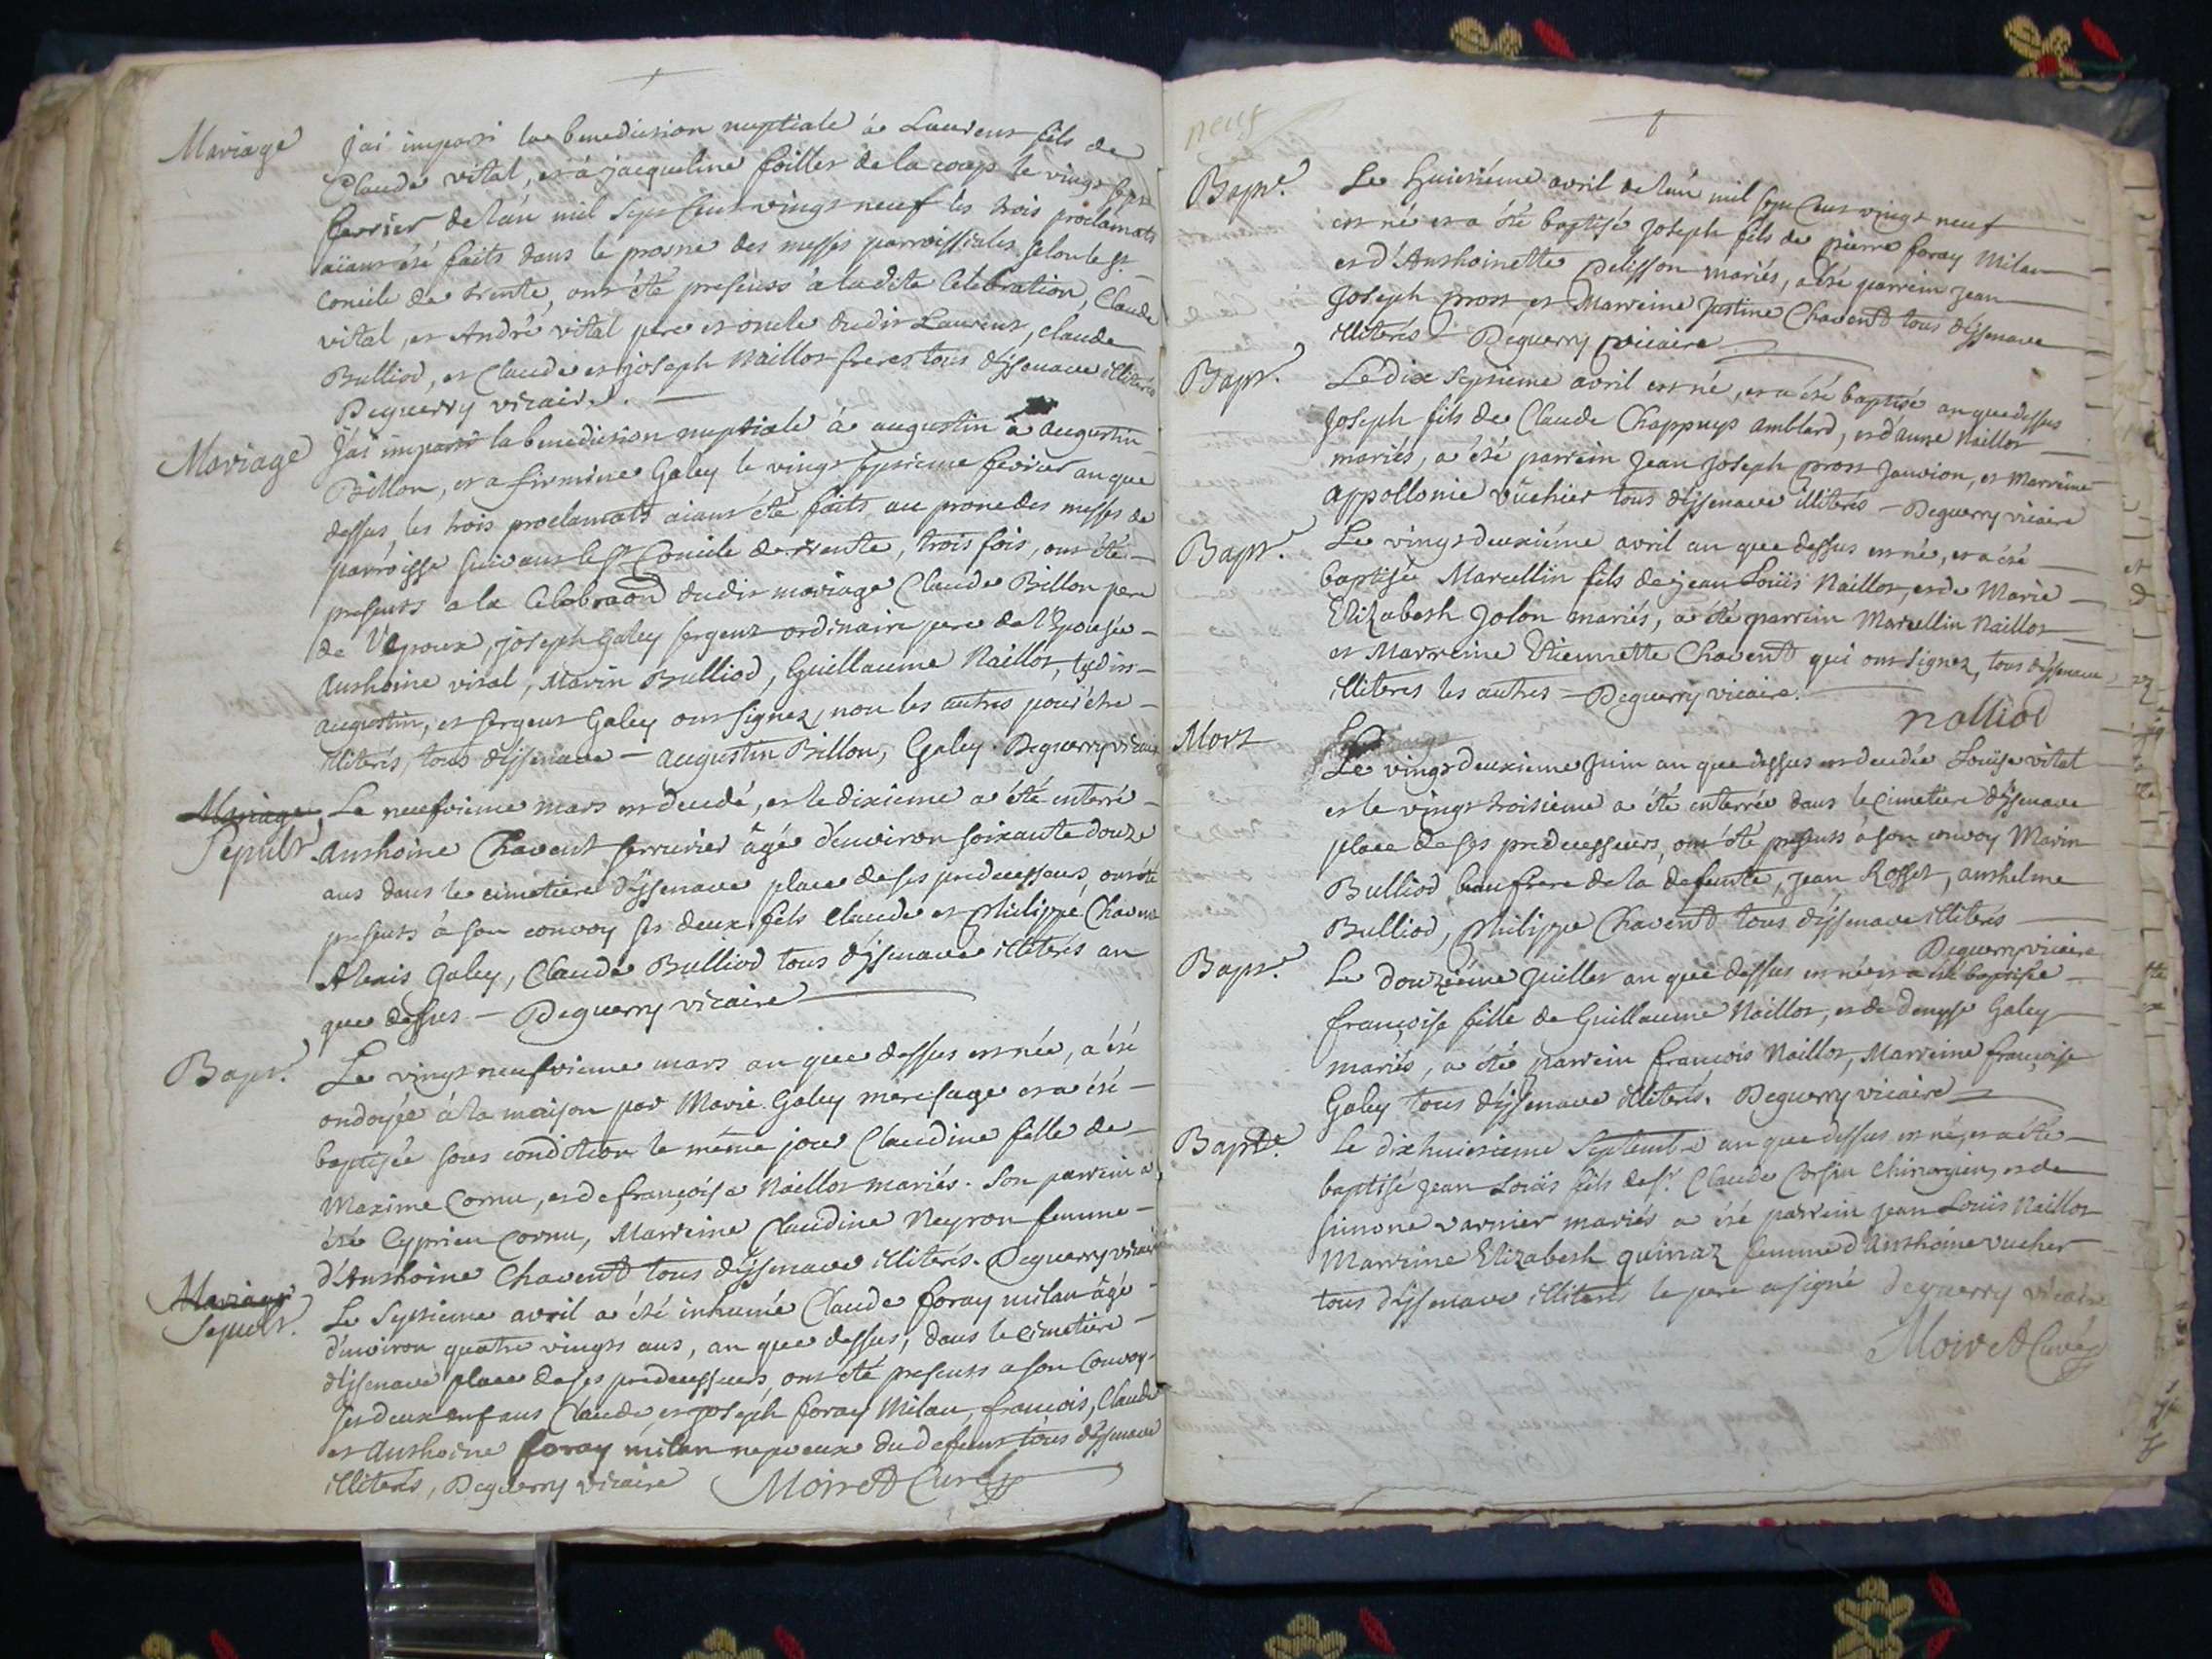 Mariage
J'ai imparti la benediction nuptiale à Laurent fils de
Claude vital, et à jacqueline foilles de la coup le vingt sept
fevrier de l'an mil sept cent vingt neuf les trois proclamats
aïant été faits dans le prosne des messes parroissiales selon le st.
Concile de trente, ont été presents à la dite Celebration, Claude
vital, et André vital pere et oncle dudit Laurent, Claude
Bulliod, et Claude et joseph Naillot freres tous d'jssenave illiterés
Deguerry vicaire.
Mariage
J'ai imparti la benediction nuptiale à augustin à augustin
Billon, et a firmine Galey le vingt septieme fevrier an que
dessus, les trois proclamats aiant été faits au prone des messes de
parroisse suivant le st Concile de trente, trois fois, ont été
presents a la Celebraõn dudit mariage Claude Billon pere
de l'Epoux, joseph Galey sergent ordinaire pere de l'Epousée
Anthoine vital, Marin Bulliod, Guillaume Naillot, ledit
augustin, et sergent Galey ont signez, non les autres pour être
illiterés, tous d'jssenave — augustin Billon, Galey. Deguerry vicaire
Mariage
Sepult.
Le neufvieme mars est decedé, et le dixieme a été enterré
Anthoine Chavent serrurier âgé d'environ soixante douze
ans dans le cimetiere d'jssenave place de ses predecesseurs, ont été
presents à son convoy ses deux fils Claude et Philippe Chavent
Alexis Galey, Claude Bulliod tous d'jssenave illiterés an
que dessus — Deguerry vicaire
Bapt.
Le vingt neufvieme mars an que dessus est née, a été
ondoyée à la maison par Marie Galey mere sage et a été
baptisée sous condition le même jour Claudine fille de
Maxime Cornu, et de françoise Naillot mariés. Son parrein a
été Cyprien Cornu, Marreine Claudine Neyron femme
d'Anthoine Chavent tous d'jssenave illiterés. Deguerry vicaire
Mariage
Sepult.
Le Septieme avril a été inhumé Claude foray milan âgé
d'environ quatre vingts ans, an que dessus, dans le cimetiere
d'jssenave place de ses predecesseurs ont été presents a son Convoy
ses deux enfans Claude et joseph foray Milan, francois, Claude
et Anthoine foray milan nepveux du defunt tous d'jssenave
illiterés, Deguerry vicaire Moiret Curé
neuf
Bapt.
Le huictiéme avril de l'an mil sept cent vingt neuf
est né et a été baptisé joseph fils de pierre foray Milan
et d'Anthoinette Pelisson mariés, a été parrein jean
joseph prost et Marreine justine Chavent tous d'jssenave
illiterés — Deguerry vicaire
Bapt.
Le dix septieme avril est né, et a été baptisé an que dessus
joseph fils de Claude Chappuys amblard, et d'anne Naillot
mariés, a été parrein jean joseph prost janvion, et Marreine
appollonie vuchier tous d'jssenave illiterés — Deguerry vicaire
Bapt.
Le vingt deuxiéme avril an que dessus est né, et a été
baptisée Marcellin fils de jean Louïs Naillot, et de Marie
Elizabeth jolon mariés, a été parrein Marcellin Naillot
et Marreine Etiennette Chavent qui ont signez, tous d'jssenave
illiteres les autres — Deguerry vicaire.
nalliod
Mort
Le vingt deuxieme juin an que dessus est decedée Louïse vital
et le vingt troisieme a été enterrée dans le cimetiere d'jssenave
place de ses predecesseurs, ont été presents à son convoy Marin
Bulliod beau frere de la defunte, jean Rosset, anthelme
Bulliod, Philippe Chavent tous d'jssenave illiterés
Deguerry vicaire
Bapt.
Le douziéme juillet an que dessus est née et a été baptisée
françoise fille de Guillaume Naillot, et de denyse Galey
mariés, a été parrein françois Naillot, Marreine françoise
Galey tous d'jssenave illiterés. Deguerry vicaire
Bapte.
Le dix huictieme Septembre an que dessus est né, et a été
baptisé jean Loüis fils de sr. Claude Corsin Chirurgien, et de
simone varnier mariés a été parrein jean Louïs Naillot
Marreine Elizabeth quinaz femme d'Anthoine vucher
tous d'jssenave illiterés le pere a signé deguerry vicaire
Moiret Curé